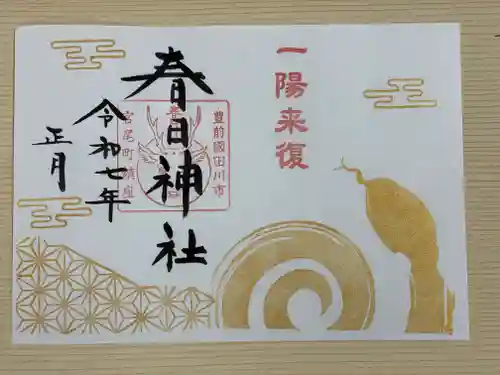 一陽来復
春日神社
豊前國田川市
春日
宮尾町鎮座
令和七年
正月